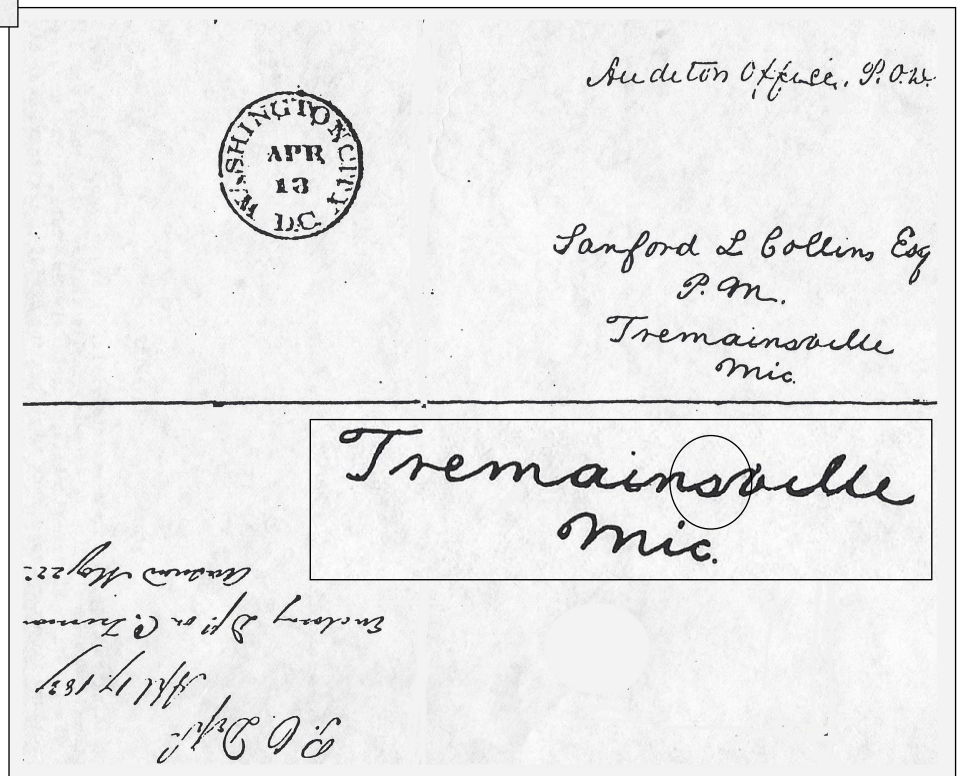 Auditors Office, P.O.D.
WASHINGTON CITY
APR
13
D.C.
Sanford L Collins Esq
P.M.
Tremainsville
Mic.
Tremainsville
Mic.
P. O. Dept
Apl 17 1837
Enclosing Dft on C. Tremain
Answered May 22